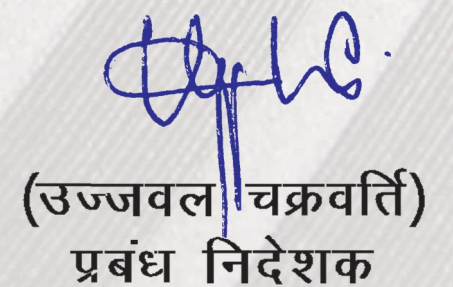 (उज्जवल चक्रवर्ति)
प्रबंध निदेशक